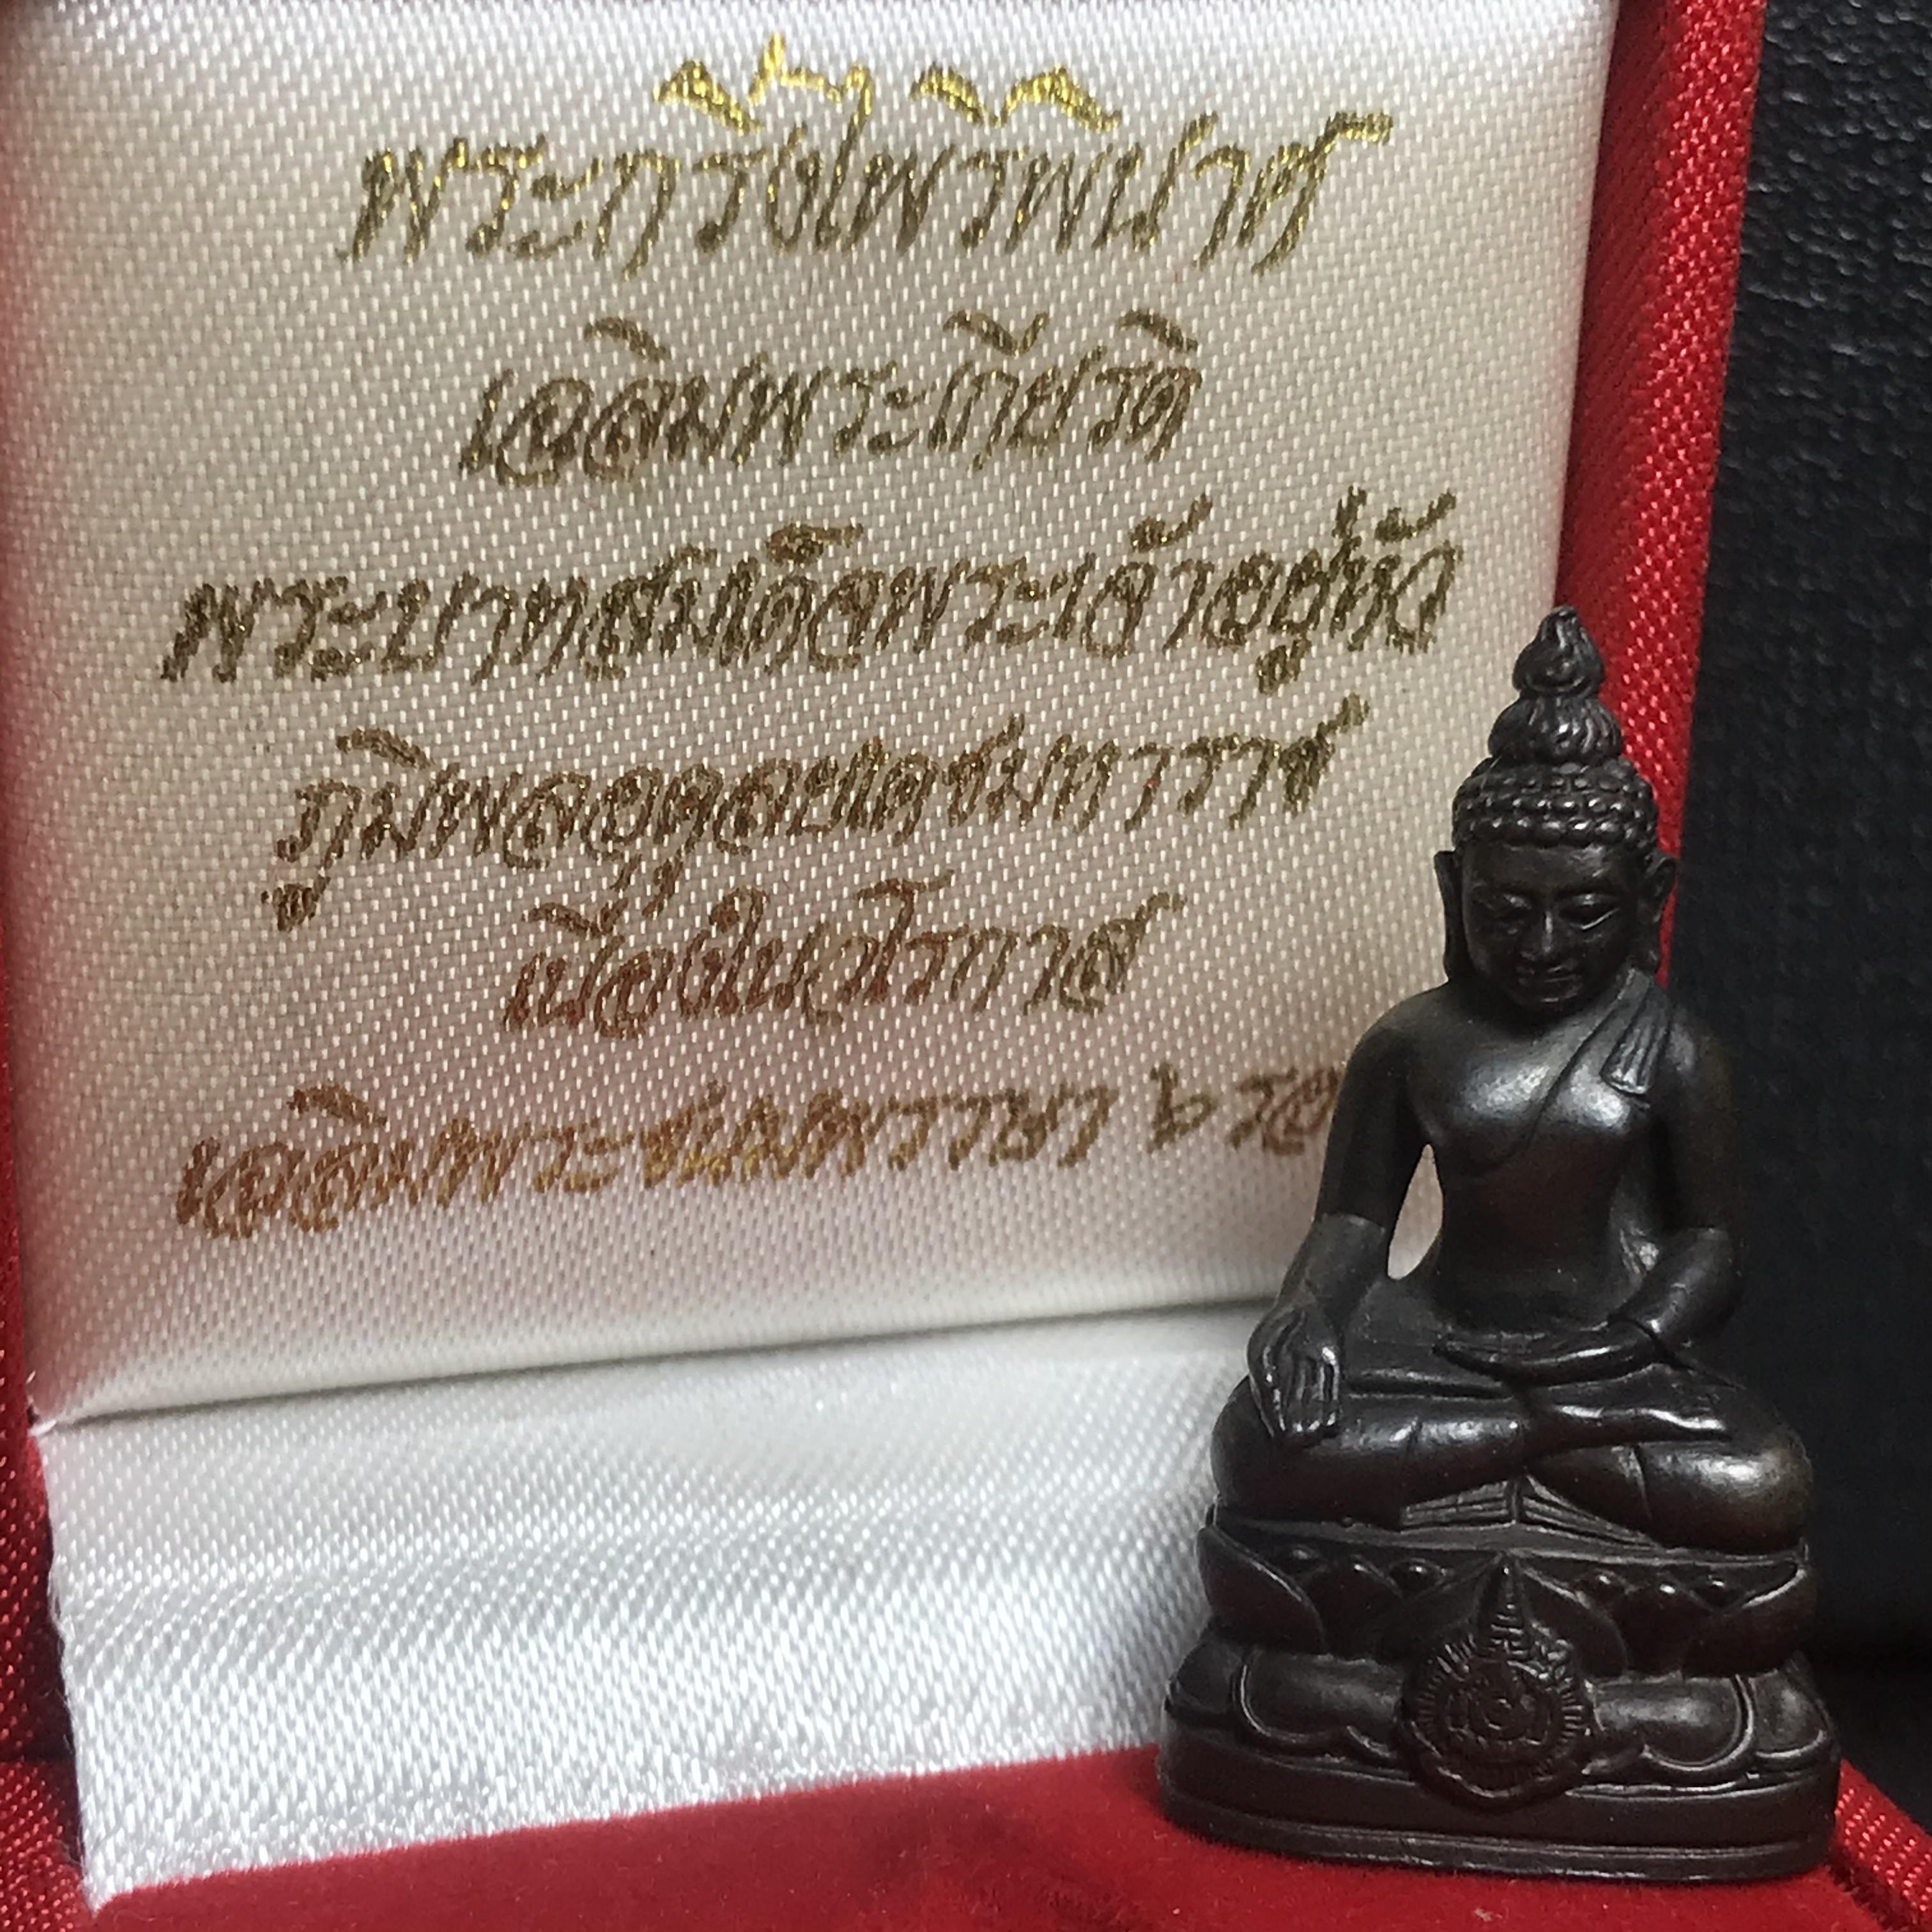 พระกริ่งไพรีพินาศ
เฉลิมพระเกียรติ
พระบาทสมเด็จพระเจ้าอยู่หัว
ภูมิพลอดุลยเดชมหาราช
เนื่องในวโรกาส
เฉลิมพระชนมพรรษา ๖ รอบ